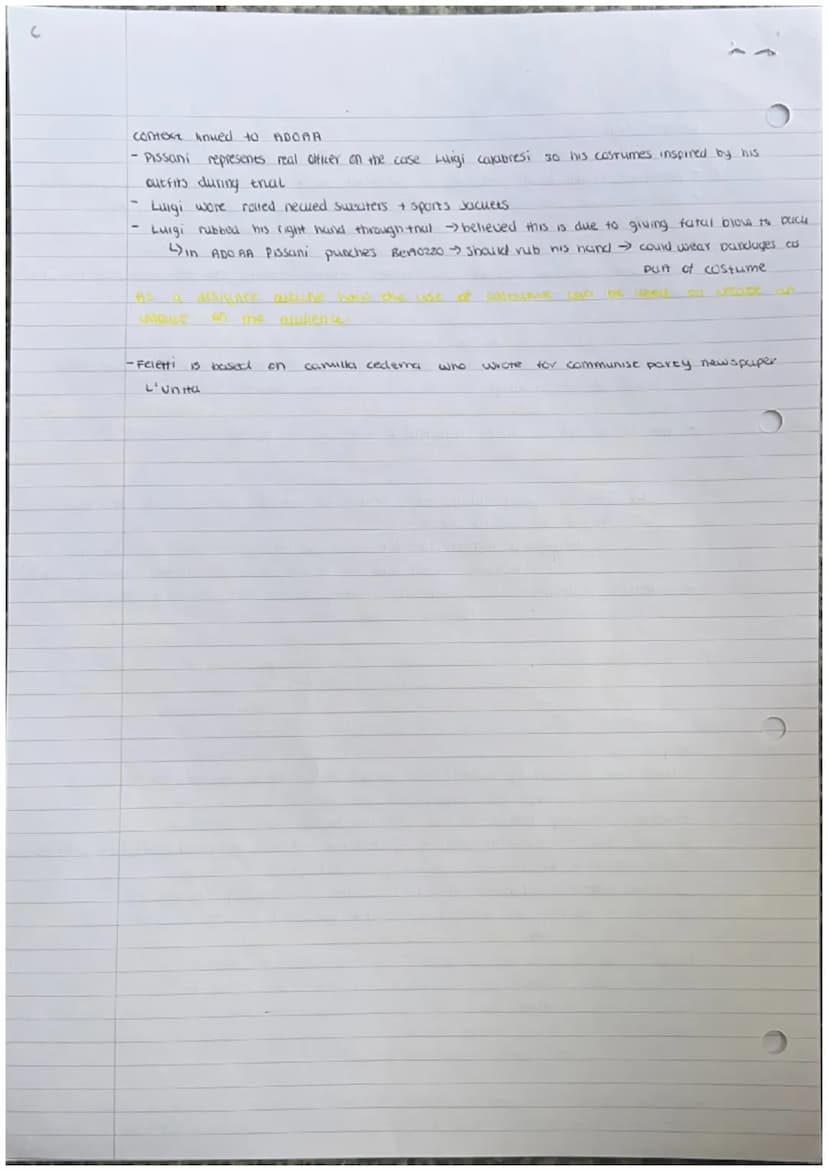 context linked to ADOAA
- Pissani represents real officer on the case Luigi calabresi so his costumes inspired by his
outfits during trial
- Luigi wore rolled necked sweaters + sports jackets
- Luigi rubbed his right hand through trial → believed this is due to giving fatal blow to back
↳ in ADOAA Pissani punches Bertozzo → should rub his hand → could wear bandages as
part of costume
As a designer outline how the use of costume can be used to create an
impact on the audience
- Feletti is based on camilla cederna who wrote for communist party newspaper
L'unita